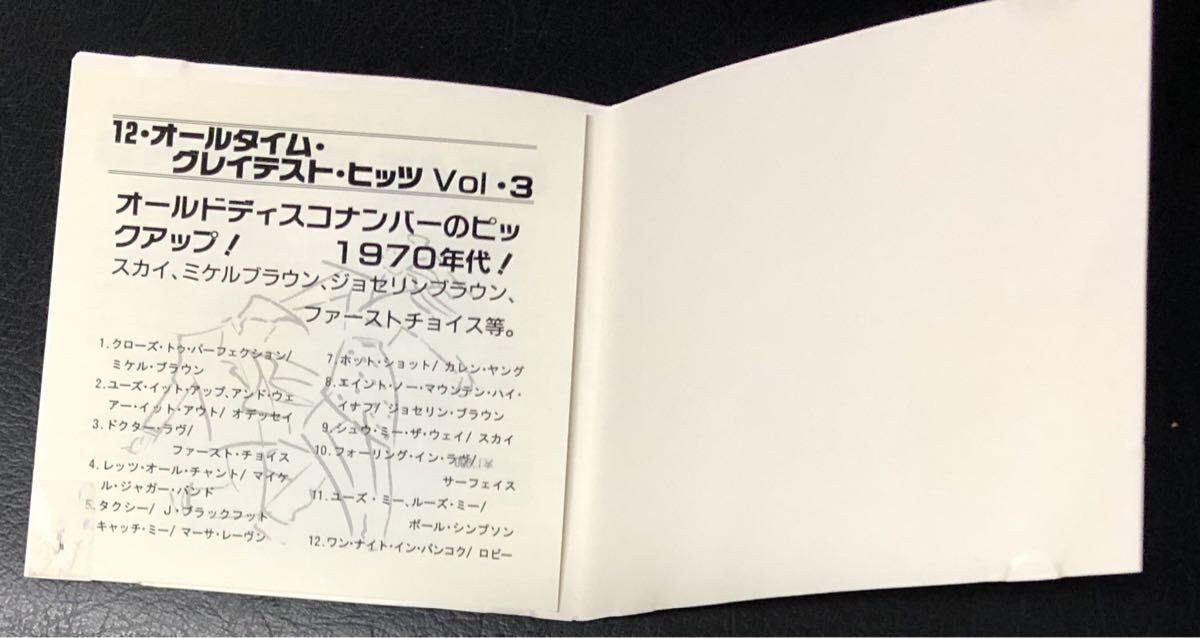 12・オールタイム・
グレイテスト・ヒッツ Vol・3
オールドディスコナンバーのピッ
クアップ！ 1970年代！
スカイ、ミケルブラウン、ジョセリンブラウン、
ファーストチョイス等。
1.クローズ・トゥ・パーフェクション/
ミケル・ブラウン
2.ユーズ・イット・アップ、アンド・ウェ
アー・イット・アウト/ オデッセイ
3.ドクター・ラヴ/
ファースト・チョイス
4.レッツ・オール・チャント/ マイケ
ル・ジャガー・バンド
5.タクシー/ J・ブラックフット
キャッチ・ミー/ マーサ・レーヴン
7.ホット・ショット/ カレン・ヤング
8.エイント・ノー・マウンテン・ハイ・
イナフ/ ジョセリン・ブラウン
9.シュウ・ミー・ザ・ウェイ/ スカイ
10.フォーリング・イン・ラヴ/
サーフェイス
11.ユーズ・ミー、ルーズ・ミー/
ポール・シンプソン
12.ワン・ナイト・イン・バンコク/ ロビー